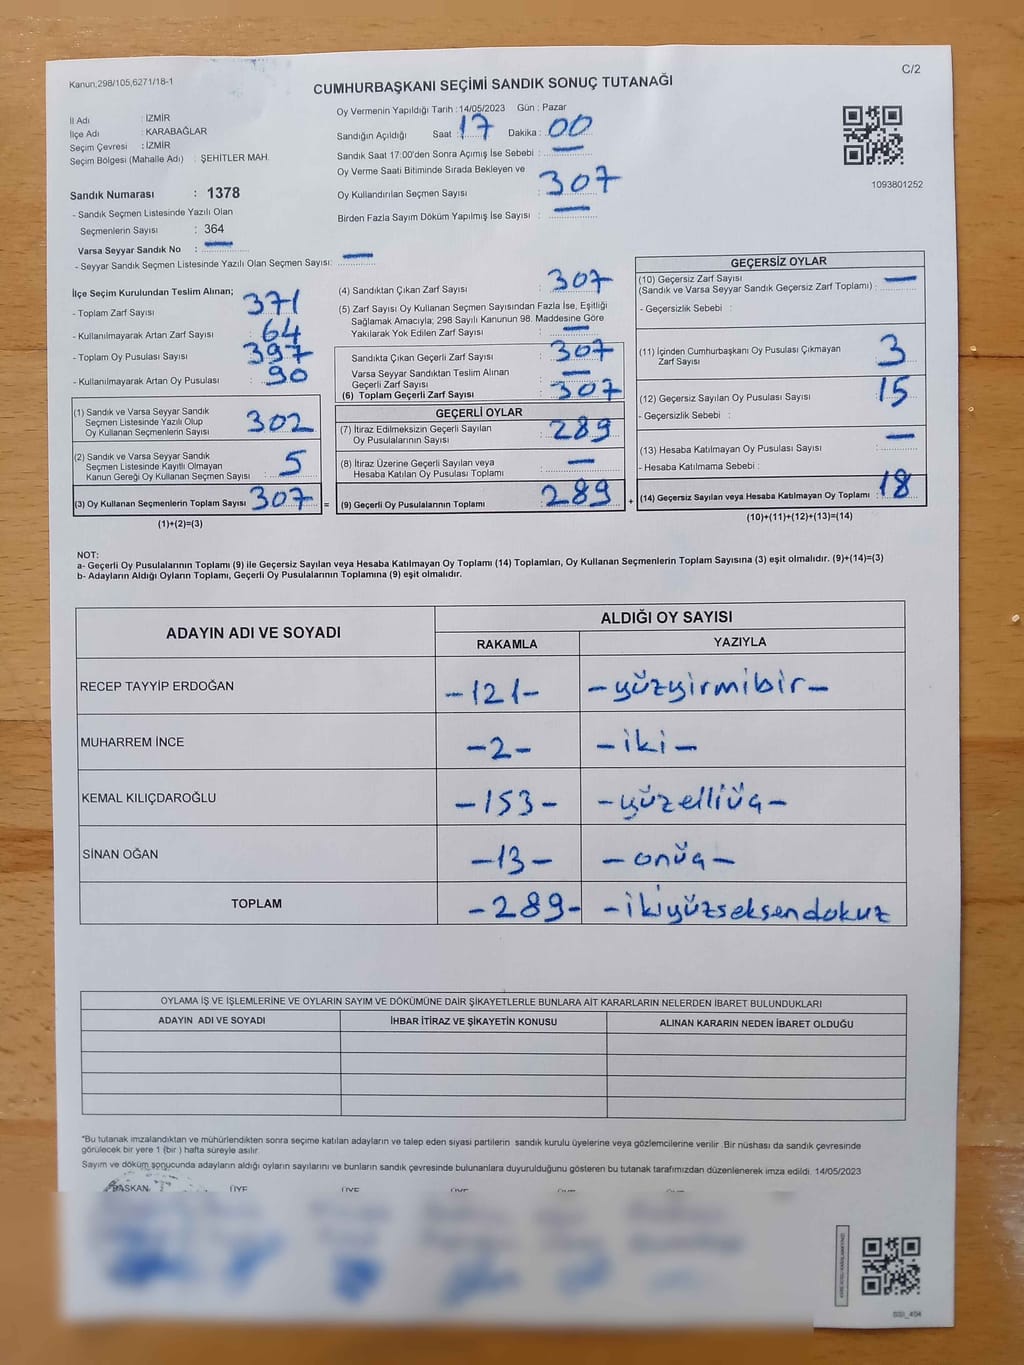 Kanun,298/105,6271/18-1
C/2
CUMHURBAŞKANI SEÇİMİ SANDIK SONUÇ TUTANAĞI
İl Adı : İZMİR
İlçe Adı : KARABAĞLAR
Seçim Çevresi : İZMİR
Seçim Bölgesi (Mahalle Adı) : ŞEHİTLER MAH.
Sandık Numarası : 1378
- Sandık Seçmen Listesinde Yazılı Olan
Seçmenlerin Sayısı : 364
Varsa Seyyar Sandık No : —
- Seyyar Sandık Seçmen Listesinde Yazılı Olan Seçmen Sayısı: —
Oy Vermenin Yapıldığı Tarih : 14/05/2023 Gün : Pazar
Sandığın Açıldığı Saat : 17 Dakika : 00
Sandık Saat 17:00'den Sonra Açımış İse Sebebi : —
Oy Verme Saati Bitiminde Sırada Bekleyen ve
Oy Kullandırılan Seçmen Sayısı : 307
Birden Fazla Sayım Döküm Yapılmış İse Sayısı : —
1093801252
İlçe Seçim Kurulundan Teslim Alınan;
- Toplam Zarf Sayısı : 371
- Kullanılmayarak Artan Zarf Sayısı : 64
- Toplam Oy Pusulası Sayısı : 397
- Kullanılmayarak Artan Oy Pusulası : 90
(1) Sandık ve Varsa Seyyar Sandık
Seçmen Listesinde Yazılı Olup
Oy Kullanan Seçmenlerin Sayısı : 302
(2) Sandık ve Varsa Seyyar Sandık
Seçmen Listesinde Kayıtlı Olmayan
Kanun Gereği Oy Kullanan Seçmen Sayısı : 5
(3) Oy Kullanan Seçmenlerin Toplam Sayısı : 307 =
(1)+(2)=(3)
(4) Sandıktan Çıkan Zarf Sayısı : 307
(5) Zarf Sayısı Oy Kullanan Seçmen Sayısından Fazla İse, Eşitliği
Sağlamak Amacıyla; 298 Sayılı Kanunun 98. Maddesine Göre
Yakılarak Yok Edilen Zarf Sayısı : —
Sandıkta Çıkan Geçerli Zarf Sayısı : 307
Varsa Seyyar Sandıktan Teslim Alınan
Geçerli Zarf Sayısı : —
(6) Toplam Geçerli Zarf Sayısı : 307
GEÇERLİ OYLAR
(7) İtiraz Edilmeksizin Geçerli Sayılan
Oy Pusulalarının Sayısı : 289
(8) İtiraz Üzerine Geçerli Sayılan veya
Hesaba Katılan Oy Pusulası Toplamı : —
(9) Geçerli Oy Pusulalarının Toplamı : 289 +
GEÇERSİZ OYLAR
(10) Geçersiz Zarf Sayısı
(Sandık ve Varsa Seyyar Sandık Geçersiz Zarf Toplamı) : —
- Geçersizlik Sebebi :
(11) İçinden Cumhurbaşkanı Oy Pusulası Çıkmayan
Zarf Sayısı : 3
(12) Geçersiz Sayılan Oy Pusulası Sayısı : 15
- Geçersizlik Sebebi :
(13) Hesaba Katılmayan Oy Pusulası Sayısı : —
- Hesaba Katılmama Sebebi :
(14) Geçersiz Sayılan veya Hesaba Katılmayan Oy Toplamı : 18
(10)+(11)+(12)+(13)=(14)
NOT:
a- Geçerli Oy Pusulalarının Toplamı (9) ile Geçersiz Sayılan veya Hesaba Katılmayan Oy Toplamı (14) Toplamları, Oy Kullanan Seçmenlerin Toplam Sayısına (3) eşit olmalıdır. (9)+(14)=(3)
b- Adayların Aldığı Oyların Toplamı, Geçerli Oy Pusulalarının Toplamına (9) eşit olmalıdır.
ADAYIN ADI VE SOYADI
ALDIĞI OY SAYISI
RAKAMLA YAZIYLA
RECEP TAYYİP ERDOĞAN -121- -yüzyirmibir-
MUHARREM İNCE -2- -iki-
KEMAL KILIÇDAROĞLU -153- -yüzelliüç-
SİNAN OĞAN -13- -onüç-
TOPLAM -289- -ikiyüzseksendokuz
OYLAMA İŞ VE İŞLEMLERİNE VE OYLARIN SAYIM VE DÖKÜMÜNE DAİR ŞİKAYETLERLE BUNLARA AİT KARARLARIN NELERDEN İBARET BULUNDUKLARI
ADAYIN ADI VE SOYADI İHBAR İTİRAZ VE ŞİKAYETİN KONUSU ALINAN KARARIN NEDEN İBARET OLDUĞU
"Bu tutanak imzalandıktan ve mühürlendikten sonra seçime katılan adayların ve talep eden siyasi partilerin sandık kurulu üyelerine veya gözlemcilerine verilir .Bir nüshası da sandık çevresinde
görülecek bir yere 1 (bir ) hafta süreyle asılır.
Sayım ve döküm sonucunda adayların aldığı oyların sayılarını ve bunların sandık çevresinde bulunanlara duyurulduğunu gösteren bu tutanak tarafımızdan düzenlenerek imza edildi. 14/05/2023
BAŞKAN ÜYE ÜYE ÜYE ÜYE ÜYE